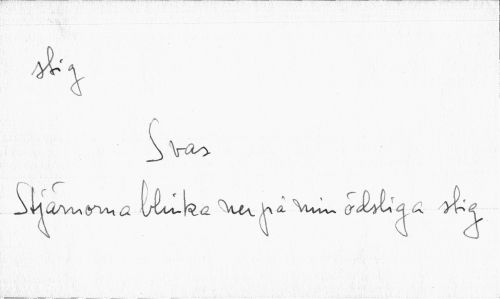 stig
Svas
Stjärnorna blinka ner på min ödsliga stig